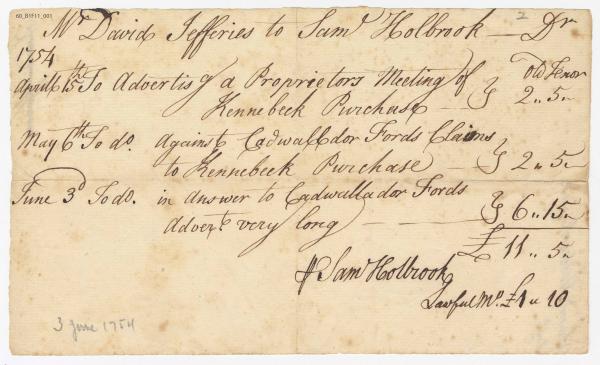 60_B1F11_001
2
Mr David Jefferies to Saml Holbrook — Dr
1754
old Tenor
Aprill 15th To Advertisg a Proprietors Meeting of
Kennebeck Purchase — } 2 „ 5 „
May 6th To do. against Cadwallador Fords Claims
to Kennebeck Purchase — } 2 „ 5 „
June 3d To do. in answer to Cadwallador Fords
Advert very long — } 6 „ 15 „
£ 11 „ 5 „
Saml Holbrook
Lawful My. £1 „ 10
3 June 1754